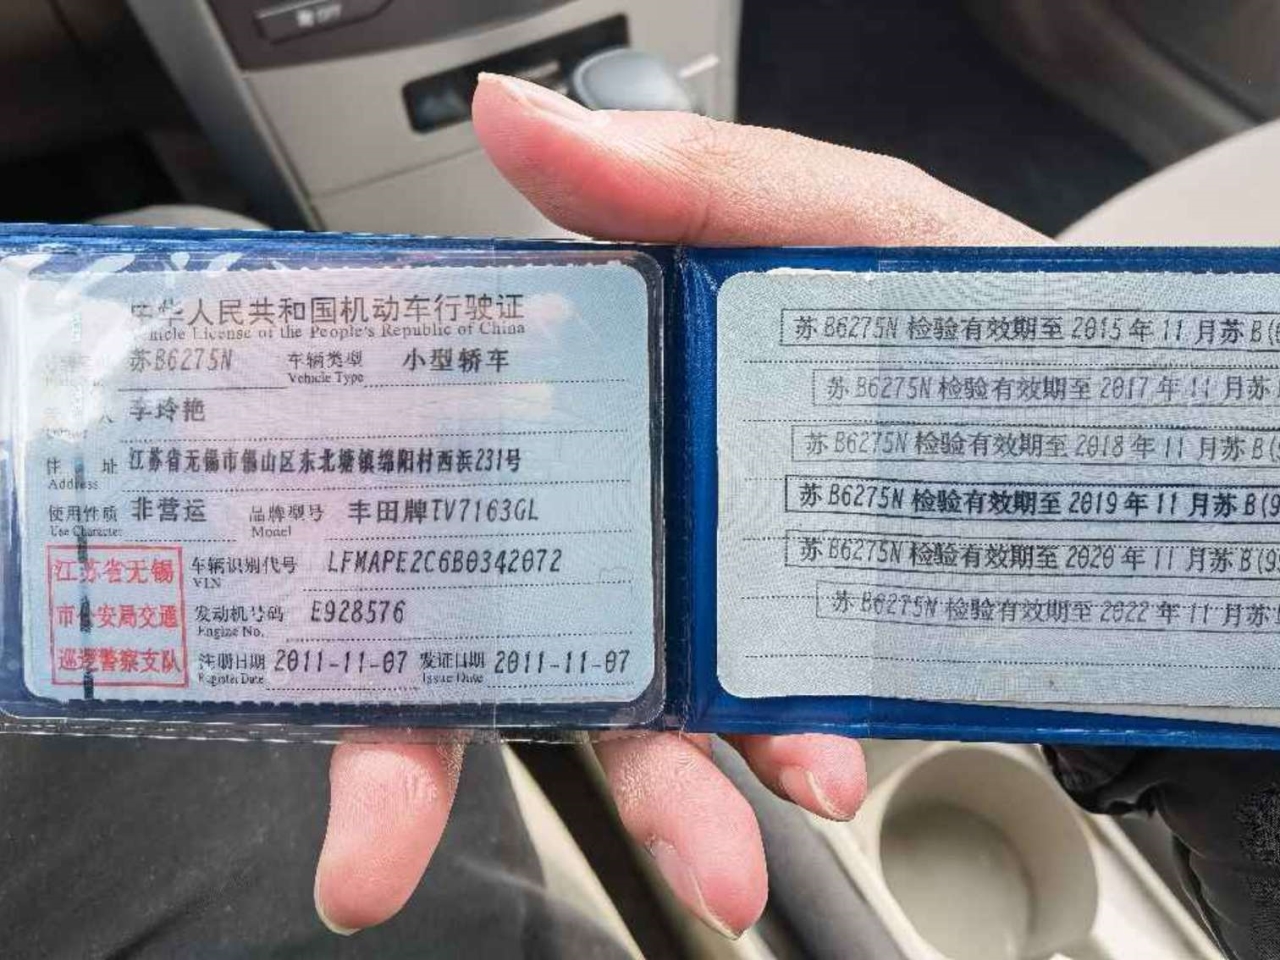 中华人民共和国机动车行驶证
Vehicle License of the People's Republic of China
苏B6275N 车辆类型 小型轿车
Vehicle Type
人 李玲艳
住 址 江苏省无锡市锡山区东北塘镇绵阳村西浜231号
Address
使用性质 非营运 品牌型号 丰田牌TV7163GL
Use Character Model
江苏省无锡
市公安局交通
巡逻警察支队
车辆识别代号 LFMAPE2C6B0342072
VIN
发动机号码 E928576
Engine No.
注册日期 2011-11-07 发证日期 2011-11-07
Register Date Issue Date
苏B6275N 检验有效期至 2015 年 11 月苏B(
苏B6275N 检验有效期至 2017 年 11 月苏
苏B6275N 检验有效期至 2018 年 11 月苏B(
苏B6275N 检验有效期至 2019 年 11 月苏B(9
苏B6275N 检验有效期至 2020 年 11 月苏B(9
苏B6275N 检验有效期至 2022 年 11 月苏